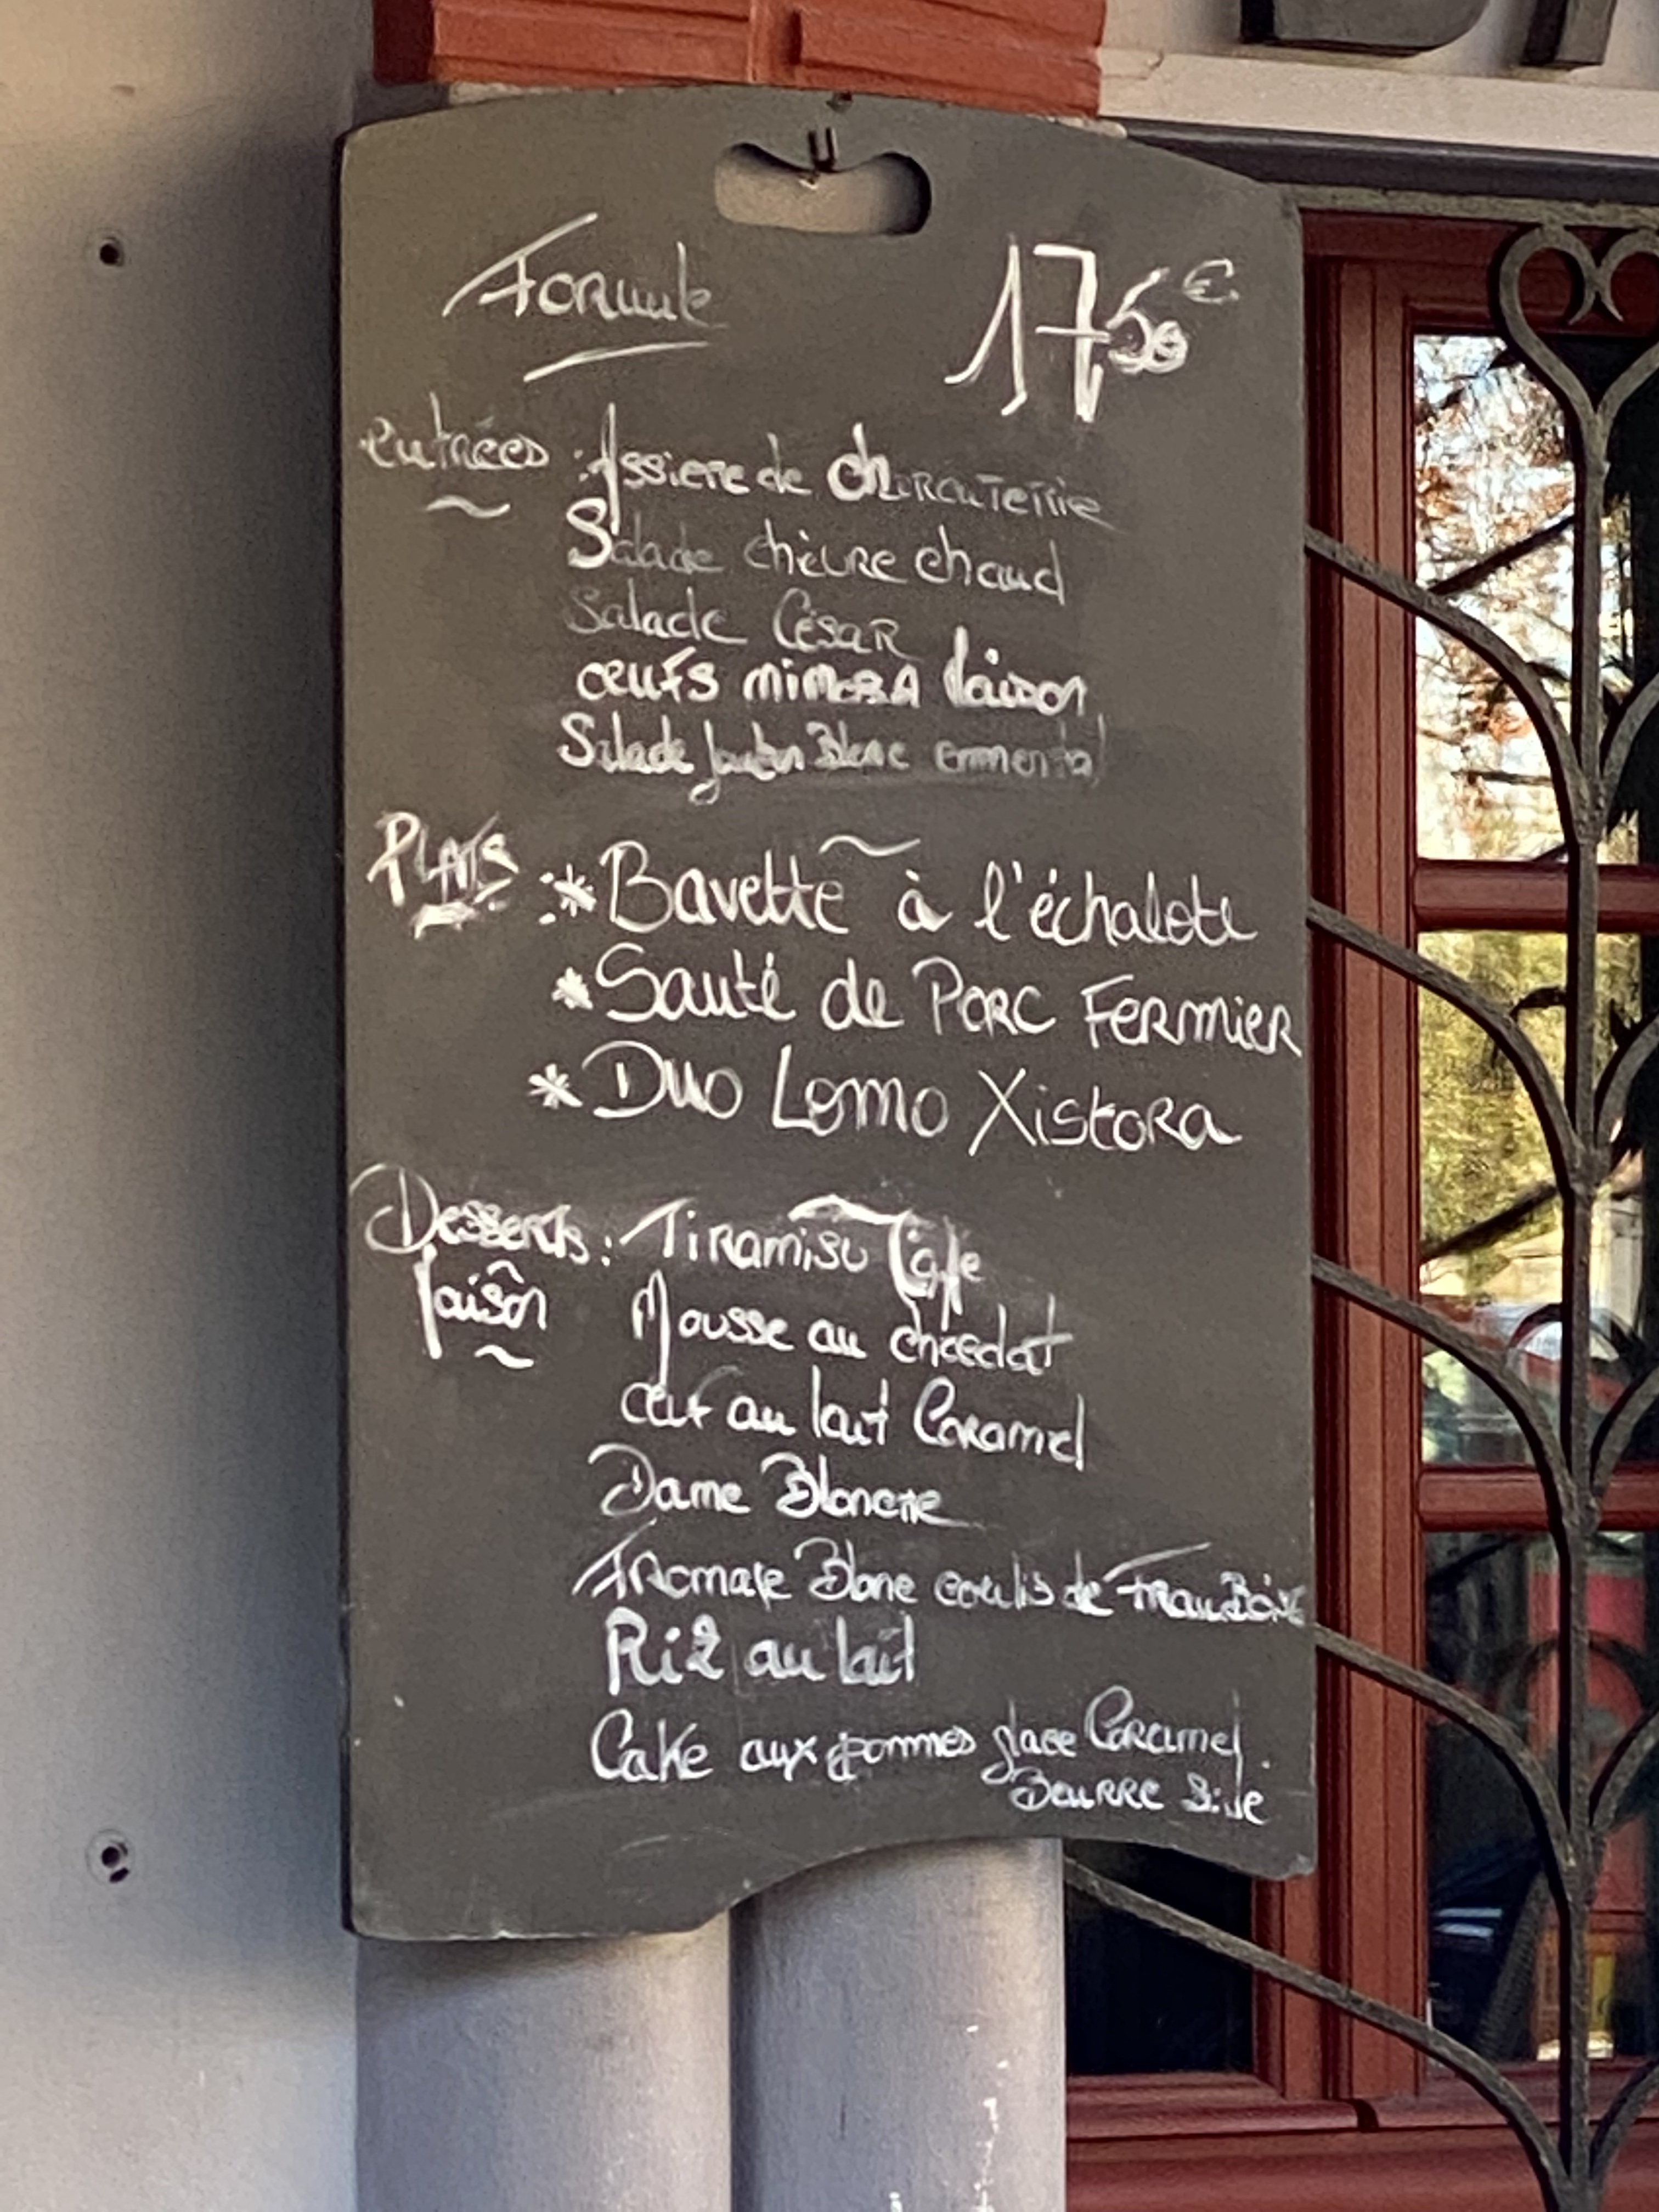 Formule 17,50€
entrées : Assiere de charcuterie
Salade chèvre chaud
Salade César
œufs mimosa Maison
Salade Jambon Blanc emmental
PLATS : * Bavette à l'échalote
* Sauté de Porc Fermier
* Duo Lomo Xistora
Desserts : Tiramisu Café
Maison
Mousse au chocolat
œuf au lait Caramel
Dame Blanche
Fromage Blanc coulis de Framboise
Riz au lait
Cake aux pommes glace Caramel
Beurre Salé